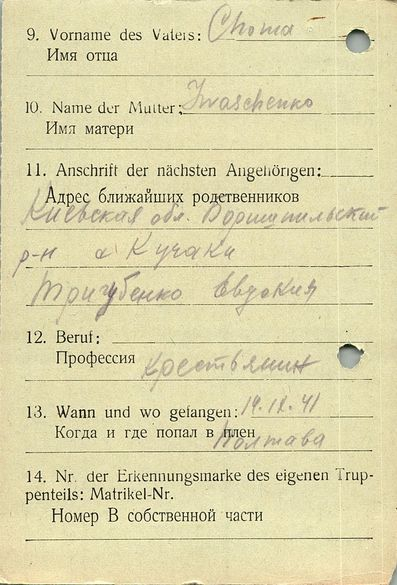 9. Vorname des Vaters: Choma
Имя отца
10. Name der Mutter: Iwaschenko
Имя матери
11. Anschrift der nächsten Angehörigen:
Адрес ближайших родственников
Киевская обл. Боришпильский
р-н с Кучаки
Тригубенко Евдокия
12. Beruf:
Профессия Крестьянин
13. Wann und wo gefangen: 19.IX.41
Когда и где попал в плен Полтава
14. Nr. der Erkennungsmarke des eigenen Trup-
penteils: Matrikel-Nr.
Номер В собственной части